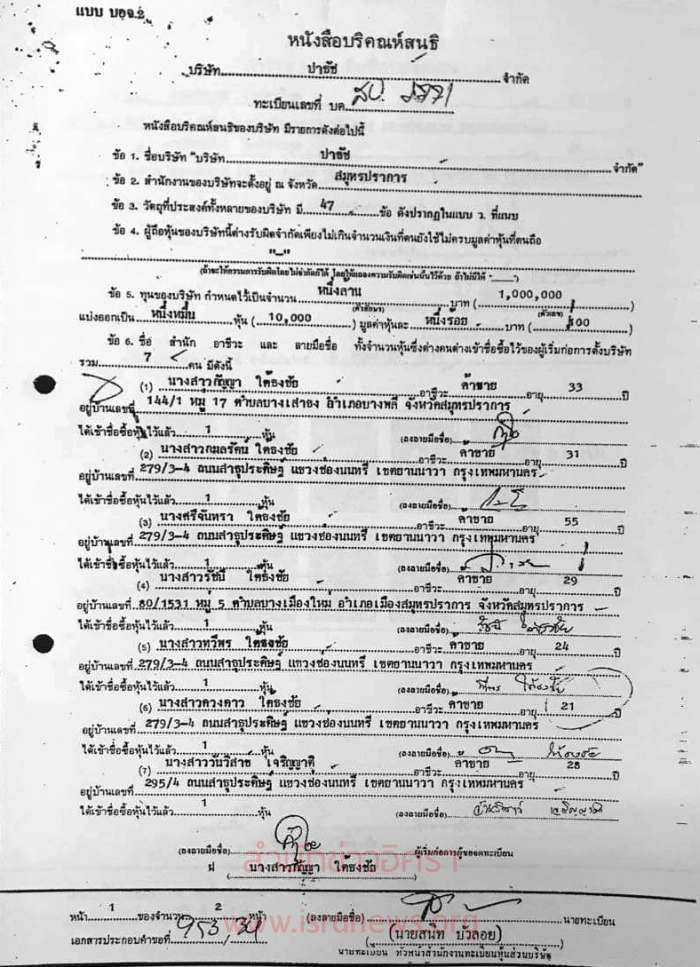 แบบ บอจ.2
หนังสือบริคณห์สนธิ
บริษัท ปาธัช จำกัด
ทะเบียนเลขที่ บค. สป. 2771
หนังสือบริคณห์สนธิของบริษัท มีรายการดังต่อไปนี้
ข้อ 1. ชื่อบริษัท "บริษัท ปาธัช จำกัด"
ข้อ 2. สำนักงานของบริษัทจะตั้งอยู่ ณ จังหวัด สมุทรปราการ
ข้อ 3. วัตถุที่ประสงค์ทั้งหลายของบริษัท มี 47 ข้อ ดังปรากฏในแบบ ว. ที่แนบ
ข้อ 4. ผู้ถือหุ้นของบริษัทนี้ต่างรับผิดจำกัดเพียงไม่เกินจำนวนเงินที่ตนยังใช้ไม่ครบมูลค่าหุ้นที่ตนถือ
"-"
ข้อ 5. ทุนของบริษัท กำหนดไว้เป็นจำนวน หนึ่งล้าน บาท ( 1,000,000 )
(ตัวอักษร) (ตัวเลข)
แบ่งออกเป็น หนึ่งหมื่น หุ้น ( 10,000 ) มูลค่าหุ้นละ หนึ่งร้อย บาท ( 100 )
ข้อ 6. ชื่อ สำนัก อาชีวะ และ ลายมือชื่อ ทั้งจำนวนหุ้นซึ่งต่างคนต่างเข้าชื่อซื้อไว้ของผู้เริ่มก่อการตั้งบริษัท
รวม 7 คน มีดังนี้
(1) นางสาวกัญญา ใต้ธงชัย อาชีวะ ค้าขาย อายุ 33 ปี
อยู่บ้านเลขที่ 144/1 หมู่ 17 ตำบลบางเสาธง อำเภอบางพลี จังหวัดสมุทรปราการ
ได้เข้าชื่อซื้อหุ้นไว้แล้ว 1 หุ้น (ลงลายมือชื่อ)
(2) นางสาวกมลรัตน์ ใต้ธงชัย อาชีวะ ค้าขาย อายุ 31 ปี
อยู่บ้านเลขที่ 279/3-4 ถนนสาธุประดิษฐ์ แขวงช่องนนทรี เขตยานนาวา กรุงเทพมหานคร
ได้เข้าชื่อซื้อหุ้นไว้แล้ว 1 หุ้น (ลงลายมือชื่อ)
(3) นางสาวศรีจันทรา ใต้ธงชัย อาชีวะ ค้าขาย อายุ 55 ปี
อยู่บ้านเลขที่ 279/3-4 ถนนสาธุประดิษฐ์ แขวงช่องนนทรี เขตยานนาวา กรุงเทพมหานคร
ได้เข้าชื่อซื้อหุ้นไว้แล้ว 1 หุ้น (ลงลายมือชื่อ)
(4) นางสาวรัชนี ใต้ธงชัย อาชีวะ ค้าขาย อายุ 29 ปี
อยู่บ้านเลขที่ 80/1531 หมู่ 5 ตำบลบางเมืองใหม่ อำเภอเมืองสมุทรปราการ จังหวัดสมุทรปราการ
ได้เข้าชื่อซื้อหุ้นไว้แล้ว 1 หุ้น (ลงลายมือชื่อ) รัชนี ใต้ธงชัย
(5) นางสาวทวีพร ใต้ธงชัย อาชีวะ ค้าขาย อายุ 24 ปี
อยู่บ้านเลขที่ 279/3-4 ถนนสาธุประดิษฐ์ แขวงช่องนนทรี เขตยานนาวา กรุงเทพมหานคร
ได้เข้าชื่อซื้อหุ้นไว้แล้ว 1 หุ้น (ลงลายมือชื่อ) ทวีพร ใต้ธงชัย
(6) นางสาวดวงดาว ใต้ธงชัย อาชีวะ ค้าขาย อายุ 21 ปี
อยู่บ้านเลขที่ 279/3-4 ถนนสาธุประดิษฐ์ แขวงช่องนนทรี เขตยานนาวา กรุงเทพมหานคร
ได้เข้าชื่อซื้อหุ้นไว้แล้ว 1 หุ้น (ลงลายมือชื่อ)
(7) นางสาววันวิสาข์ เจริญญาติ อาชีวะ ค้าขาย อายุ 28 ปี
อยู่บ้านเลขที่ 295/4 ถนนสาธุประดิษฐ์ แขวงช่องนนทรี เขตยานนาวา กรุงเทพมหานคร
ได้เข้าชื่อซื้อหุ้นไว้แล้ว 1 หุ้น (ลงลายมือชื่อ)
(ลงลายมือชื่อ) ผู้เริ่มก่อการผู้ขอจดทะเบียน
สำนักข่าวอิศรา
ฝ ( นางสาวกัญญา ใต้ธงชัย )
หน้า 1 ของจำนวน 2 หน้า (ลงลายมือชื่อ) นายทะเบียน
www.isranews.org
เอกสารประกอบคำขอที่ 953/34 (นายสนิท บัวลอย)
นายทะเบียน หัวหน้าสำนักงานทะเบียนหุ้นส่วนบริษัท